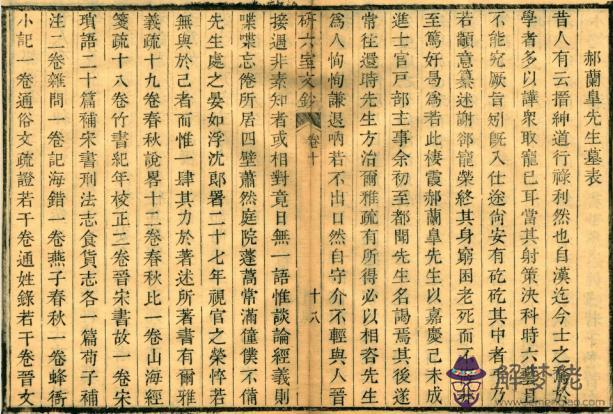 郝蘭皋先生墓表
昔人有云搢紳道行祿利然也自漢迄今士之
學者多以譁衆取寵已耳當其射策決科時六藝且
不能究厥旨既入仕途尚安有矻矻其中者乃
若顓意纂述謝卻寵榮終其身窮困老死而不
至篤好曷爲若此棲霞郝蘭皋先生以嘉慶己未成
進士官戸部主事余初至都聞先生名謁焉其後遂
常往還時先生方治爾雅疏有所得必以相咨先生
爲人恂恂謙退吶若不出口然自守介不輕與人晉
接遇非素知者或相對竟日無一語惟談論經義則
喋喋忘倦所居四壁蕭然庭院蓬蒿常滿僮僕不備
先生處之晏如浮沈郎署二十七年視官之榮悴若
無與於己者而惟一肆其力於著述所著書有爾雅
義疏十九卷春秋說畧十二卷春秋比一卷山海經
箋疏十八卷竹書紀年校正三卷晉宋書故一卷宋
瑣語二十篇補宋書刑法志食貨志各一篇荀子補
注二卷雜問一卷記海錯一卷燕子春秋一卷蜂衙
小記一卷通俗文疏證若干卷通姓錄若干卷晉文
研六室文鈔
卷十
十八
解夢佬